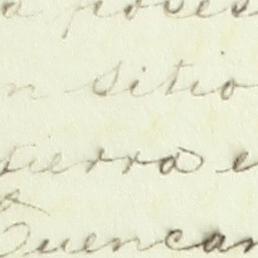 a poses
n sitio
tierra e
a
Quencan